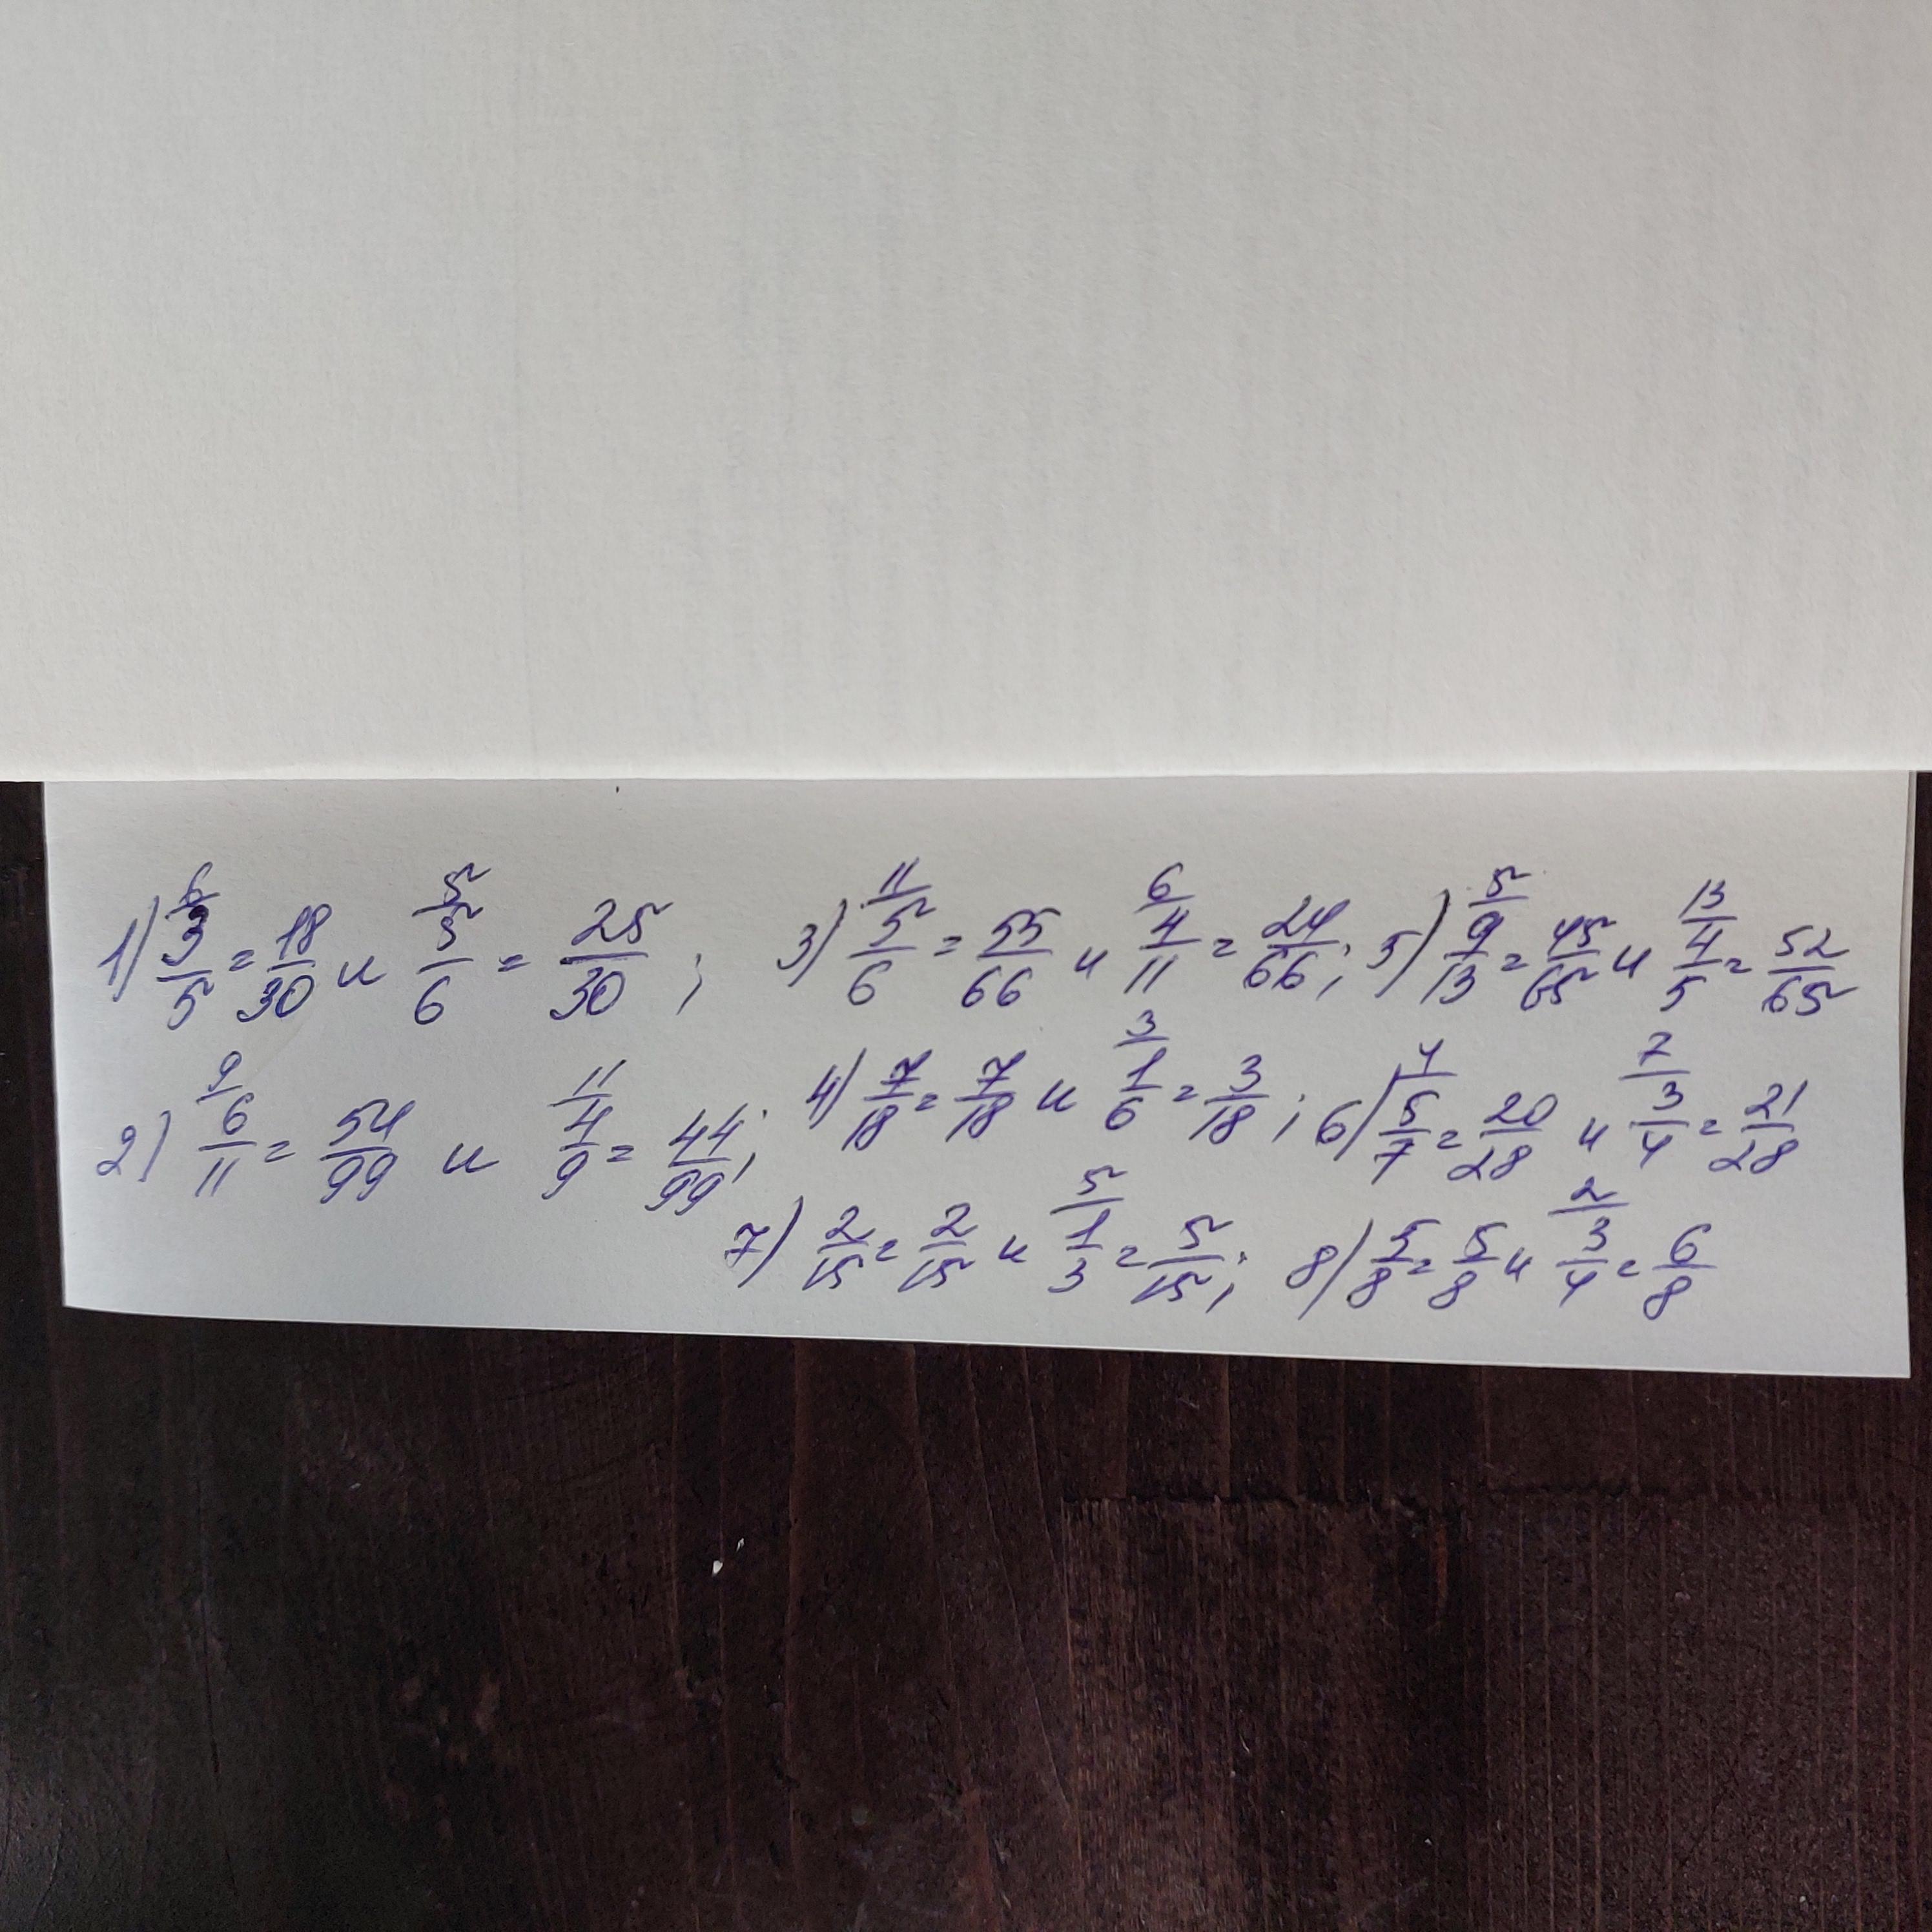 1) 6/ 3/5 = 18/30 и 5/ 5/6 = 25/30 ; 3) 11/ 5/6 = 55/66 и 6/ 4/11 = 24/66 ; 5) 5/ 9/13 = 45/65 и 13/ 4/5 = 52/65
2) 9/ 6/11 = 54/99 и 11/ 4/9 = 44/99 ; 4) 7/18 = 7/18 и 3/ 1/6 = 3/18 ; 6) 4/ 5/7 = 20/28 и 7/ 3/4 = 21/28
7) 2/15 = 2/15 и 5/ 1/3 = 5/15 ; 8) 5/8 = 5/8 и 2/ 3/4 = 6/8